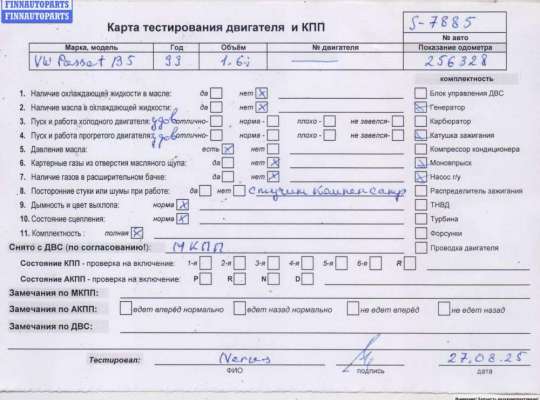 FINNAUTOPARTS
FINNAUTOPARTS
Карта тестирования двигателя и КПП
S-7885
№ авто
Марка, модель Год Объём № двигателя Показание одометра
VW Passat B5 99 1.6i 256328
комплектность
1. Наличие охлаждающей жидкости в масле: да нет Блок управления ДВС
2. Наличие масла в охлаждающей жидкости: да нет Генератор
3. Пуск и работа холодного двигателя: удов отлично- норма - плохо - не завелся- Карбюратор
4. Пуск и работа прогретого двигателя: удов отлично- норма - плохо - не завелся- Катушка зажигания
5. Давление масла: есть нет Компрессор кондиционера
6. Картерные газы из отверстия масляного щупа: да нет Моновпрыск
7. Наличие газов в расширительном бачке: да нет Насос г/у
8. Посторонние стуки или шумы при работе: да нет стучит компенсатор Распределитель зажигания
9. Дымность и цвет выхлопа: норма ТНВД
10. Состояние сцепления: норма Турбина
11. Комплектность : полная Форсунки
Снято с ДВС (по согласованию!): МКПП Проводка двигателя
Состояние КПП - проверка на включение: 1-я 2-я 3-я 4-я 5-я 6-я R
Состояние АКПП - проверка на включение: P R N D
Замечания по МКПП:
Замечания по АКПП: едет вперёд едет назад нормально не едет вперёд не едет назад
Замечания по ДВС:
Тестировал: 27.08.25
ФИО подпись дата